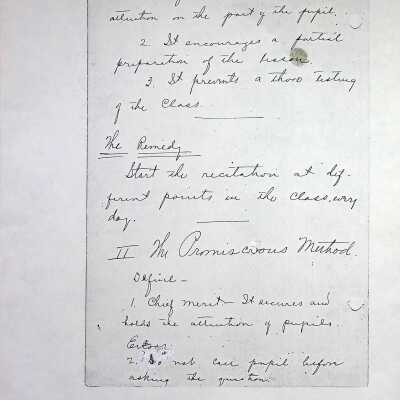 attention on the part of the pupil.
2. It encourages a partial
preparation of the lesson.
3. It prevents a thoro testing
of the Class.
The Remedy
Start the recitation at dif-
ferent points in the class, every
day.
II The Promiscuous Method.
Define -
1. Chief merit - It secures and
holds the attention of pupils.
2. Do not call pupil before
asking the question.